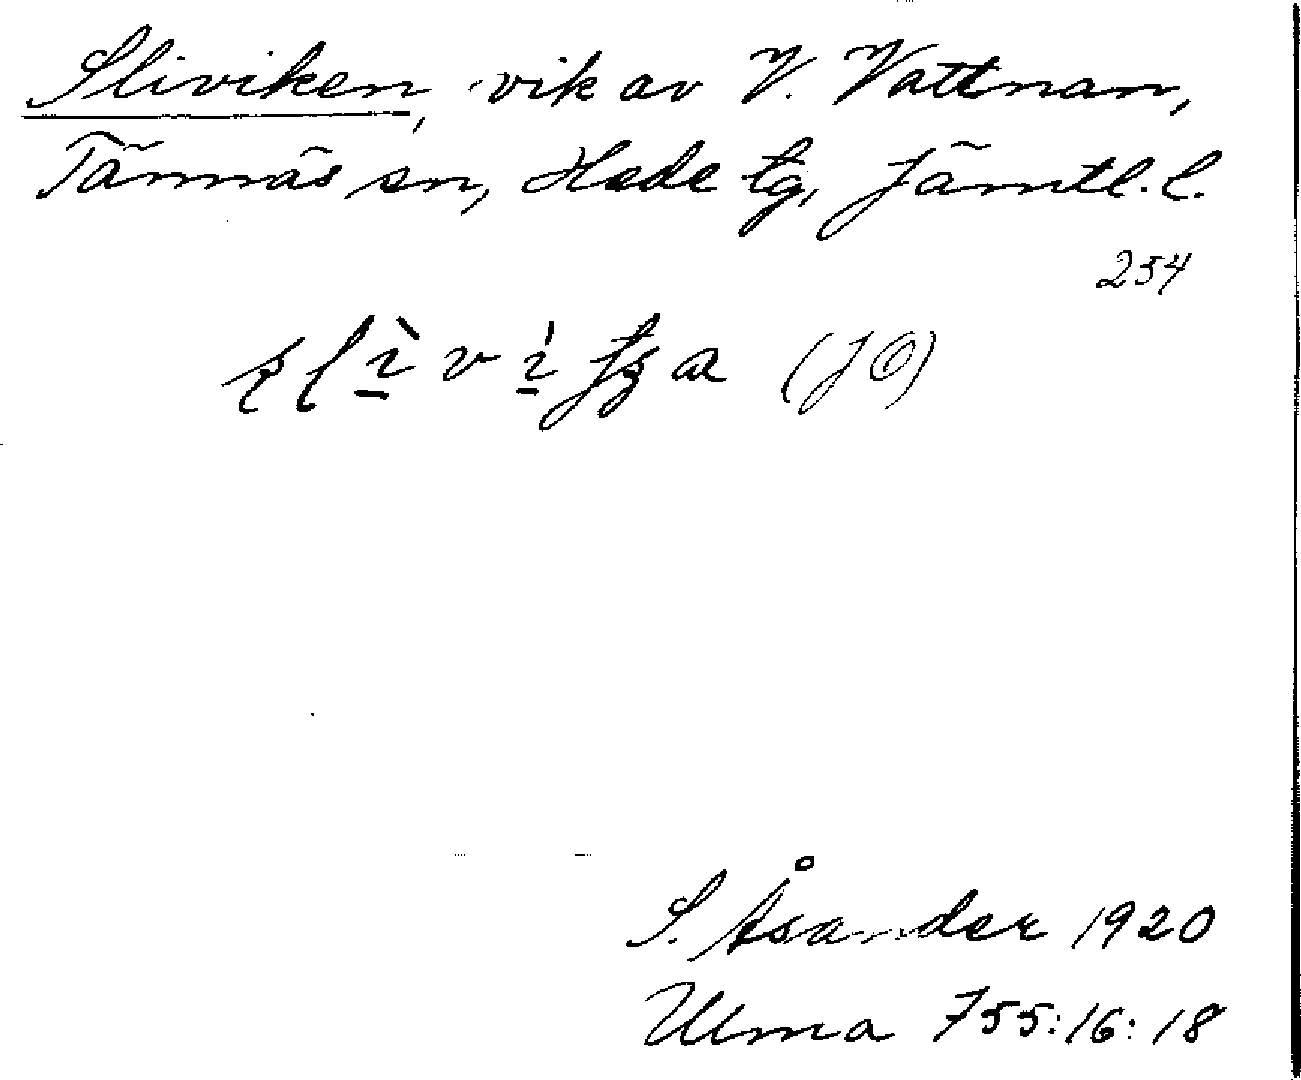 Sliviken, vik av V. Vattnan,
Tännäs sn, Hede tg, Jämtl. l.
254
S. Åsander 1920
Ulma 755:16:18